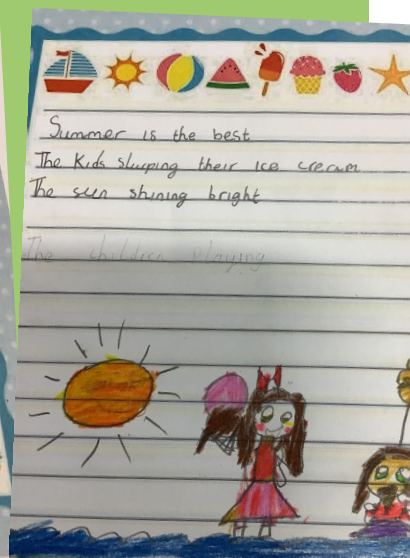 Summer is the best
The Kids slurping their Ice cream
The sun shining bright
The children playing